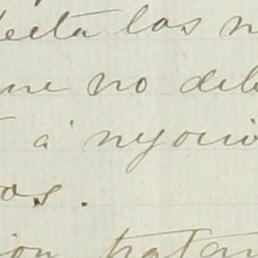 ecta las n
ue no deb
á negocio
os.
ion tratan